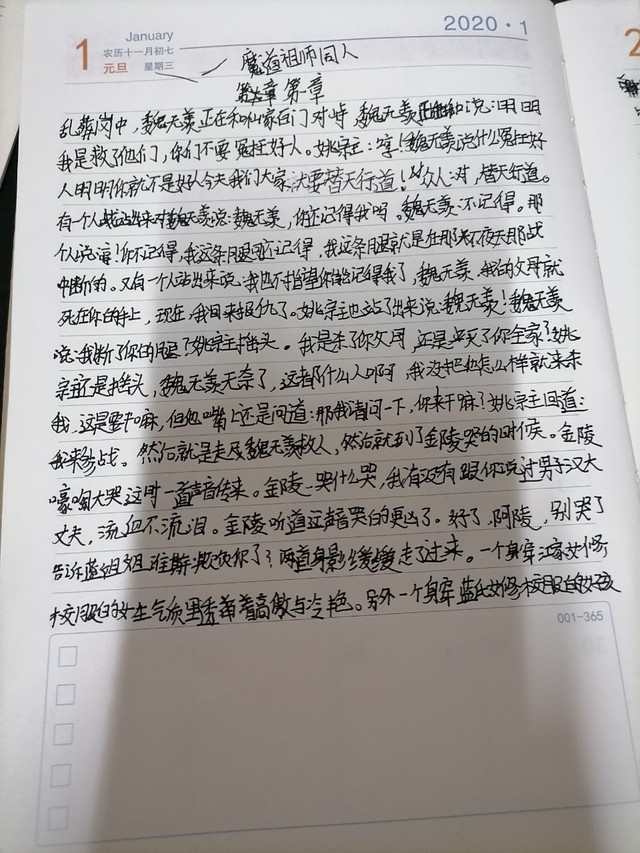 January
2020·1
1
农历十一月初七
元旦 星期三
魔道祖师同人
第一章
乱葬岗中，魏无羡正在和仙家百门对峙 魏无羡说：明明
我是救了他们，你们不要冤枉好人。姚宗主：哼！魏无羡说什么冤枉好
人明明你就不是好人今天我们大家就要替天行道！众人：对，替天行道。
有一个人站出来对魏无羡说：魏无羡，你还记得我吗。魏无羡：不记得。那
个人说：哼！你不记得，我这条腿还记得，我这条腿就是在那不夜天那战
中断的。又有一个人站出来说：我也不指望你能记得我了，魏无羡，我的父母就
死在你的手上，现在，我回来报仇了。姚宗主也站了出来说：魏无羡！魏无羡
说：我断了你的腿？姚宗主摇头。我是杀了你父母，还是灭了你全家？姚
宗主还是摇头，魏无羡无奈了，这都什么人啊，我没把他怎么样就来杀
我，这是要干嘛，但他嘴上还是问道：那我请问一下，你来干嘛？姚宗主回道：
我来参战。然后就是走及魏无羡救人，然后就到了金陵哭的时候。金陵
嚎啕大哭，这时一道声音传来。金陵，哭什么哭，我有没有跟你说过男子汉大
丈夫，流血不流泪。金陵听道这声音哭的更凶了。好了，阿陵，别哭了
告诉蓝姐姐谁欺负你了？两道身影缓缓走了过来。一个身穿江家女修
校服的女生气质里透着高傲与冷艳。另外一个身穿蓝氏女修校服的女孩
001-365
2